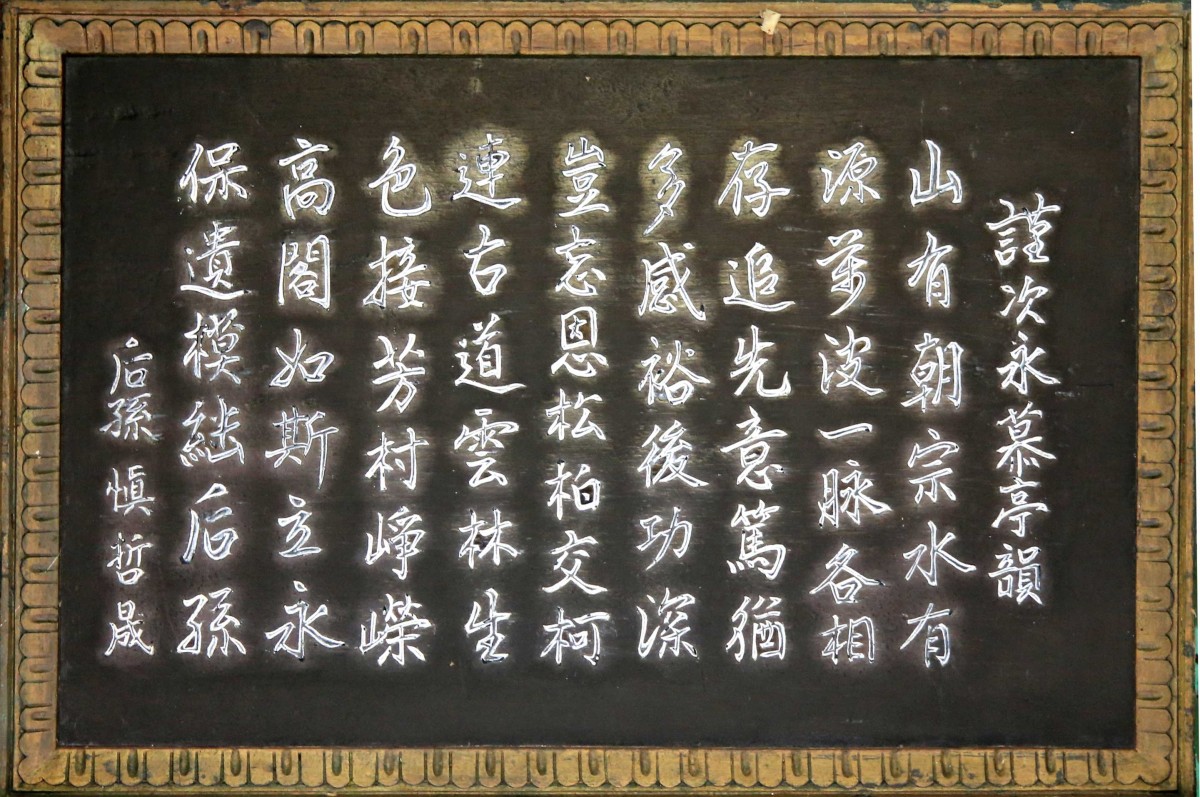 謹次永慕亭韻
山有朝宗水有
源萬波一脉各相
存追先意篤猶
多感裕後功深
豈忘恩松柏交柯
連古道雲林生
色接芳村崢嶸
高閣如斯立永
保遺模啓后孫
后孫 愼哲晟